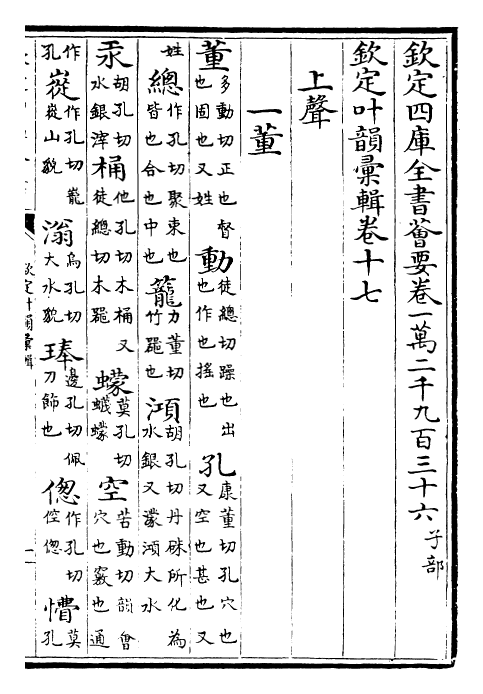 欽定四庫全書薈要卷一萬二千九百三十六子部
欽定叶韻彙輯卷十七
上聲
一董
董多動切正也督也固也又姓動徒總切躁也出也作也搖也孔康董切孔穴也又空也甚也又
姓總作孔切聚束也皆也合也中也籠力董切竹器也澒胡孔切丹硃所化為水銀又濛澒大水
汞胡孔切水銀滓桶他孔切木桶又徒總切木器蠓莫孔切蠛蠓空苦動切韻會穴也竅也通
作孔嵸作孔切巃嵸山貌滃烏孔切大水貌琫邊孔切佩刀飾也傯作孔切倥傯懵莫孔
欽定叶韻彙輯
一